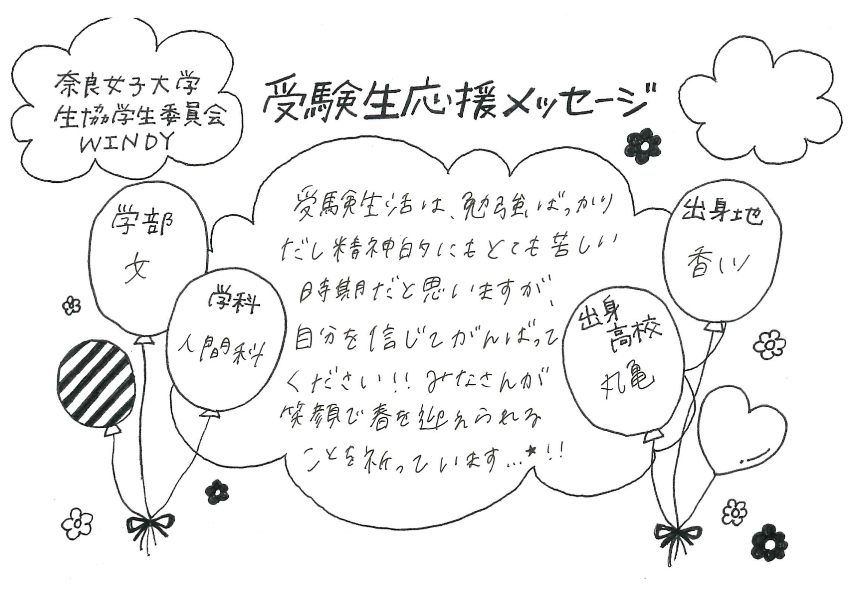 奈良女子大学
生協学生委員会
WINDY
受験生応援メッセージ
学部
文
学科
人間科
受験生活は、勉強ばっかり
だし精神的にもとても苦しい
時期だと思いますが、
自分を信じてがんばって
ください!! みなさんが
笑顔で春を迎えられる
ことを祈っています...★!!
出身地
香川
出身
高校
丸亀